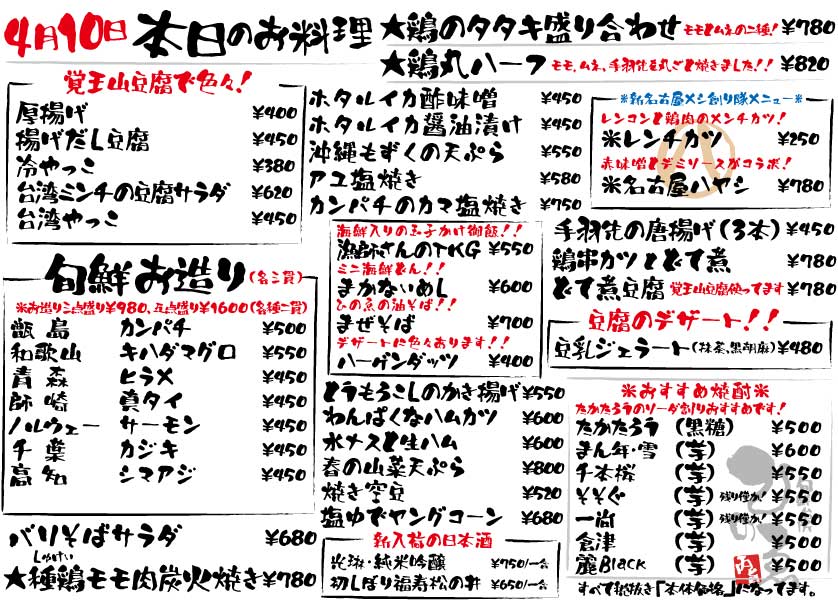 4月10日 本日のお料理
★鶏のタタキ盛り合わせ モモとムネの二種! ¥780
★鶏丸ハーフ モモ、ムネ、手羽先を丸ごと焼きました!! ¥820
覚王山豆腐で色々!
厚揚げ ¥400
揚げだし豆腐 ¥450
冷やっこ ¥380
台湾ミンチの豆腐サラダ ¥620
台湾やっこ ¥450
旬鮮お造り(各三貫)
※お造り三点盛り¥980、五点盛り¥1600(各種二貫)
甑島 カンパチ ¥500
和歌山 キハダマグロ ¥550
青森 ヒラメ ¥450
師崎 真タイ ¥450
ノルウェー サーモン ¥450
千葉 カジキ ¥450
高知 シマアジ ¥450
バリそばサラダ ¥680
しゅけい
★種鶏モモ肉炭火焼き ¥780
ホタルイカ酢味噌 ¥450
ホタルイカ醤油漬け ¥450
沖縄もずくの天ぷら ¥550
アユ塩焼き ¥580
カンパチのカマ塩焼き ¥750
海鮮入りの玉子かけ御飯!!
漁師さんのTKG ¥550
ミニ海鮮どん!!
まかないめし ¥600
ひの魚の油そば!!
まぜそば ¥700
デザートに色々あります!!
ハーゲンダッツ ¥400
とうもろこしのかき揚げ ¥550
わんぱくなハムカツ ¥600
水ナスと生ハム ¥600
春の山菜天ぷら ¥800
焼き空豆 ¥520
塩ゆでヤングコーン ¥680
新入荷の日本酒
光琳・純米吟醸 ¥750/一合
初しぼり福寿松の井 ¥650/一合
※新名古屋メシ創り隊メニュー※
レンコンと鶏肉のメンチカツ!
※レンチカツ ¥250
赤味噌とデミソースがコラボ!
※名古屋ハヤシ ¥780
手羽先の唐揚げ(3本) ¥450
鶏串カツとどて煮 ¥780
どて煮豆腐 覚王山豆腐使ってます ¥780
豆腐のデザート!!
豆乳ジェラート(抹茶、黒胡麻) ¥480
※おすすめ焼酎※
たかたろうのソーダ割りおすすめです!
たかたろう (黒糖) ¥500
まん年・雪 (芋) ¥600
千本桜 (芋) ¥550
そそぐ (芋) 残り僅か! ¥550
一尚 (芋) 残り僅か! ¥550
倉津 (芋) ¥500
麗Black (芋) ¥500
すべて税抜き「本体価格」になってます。